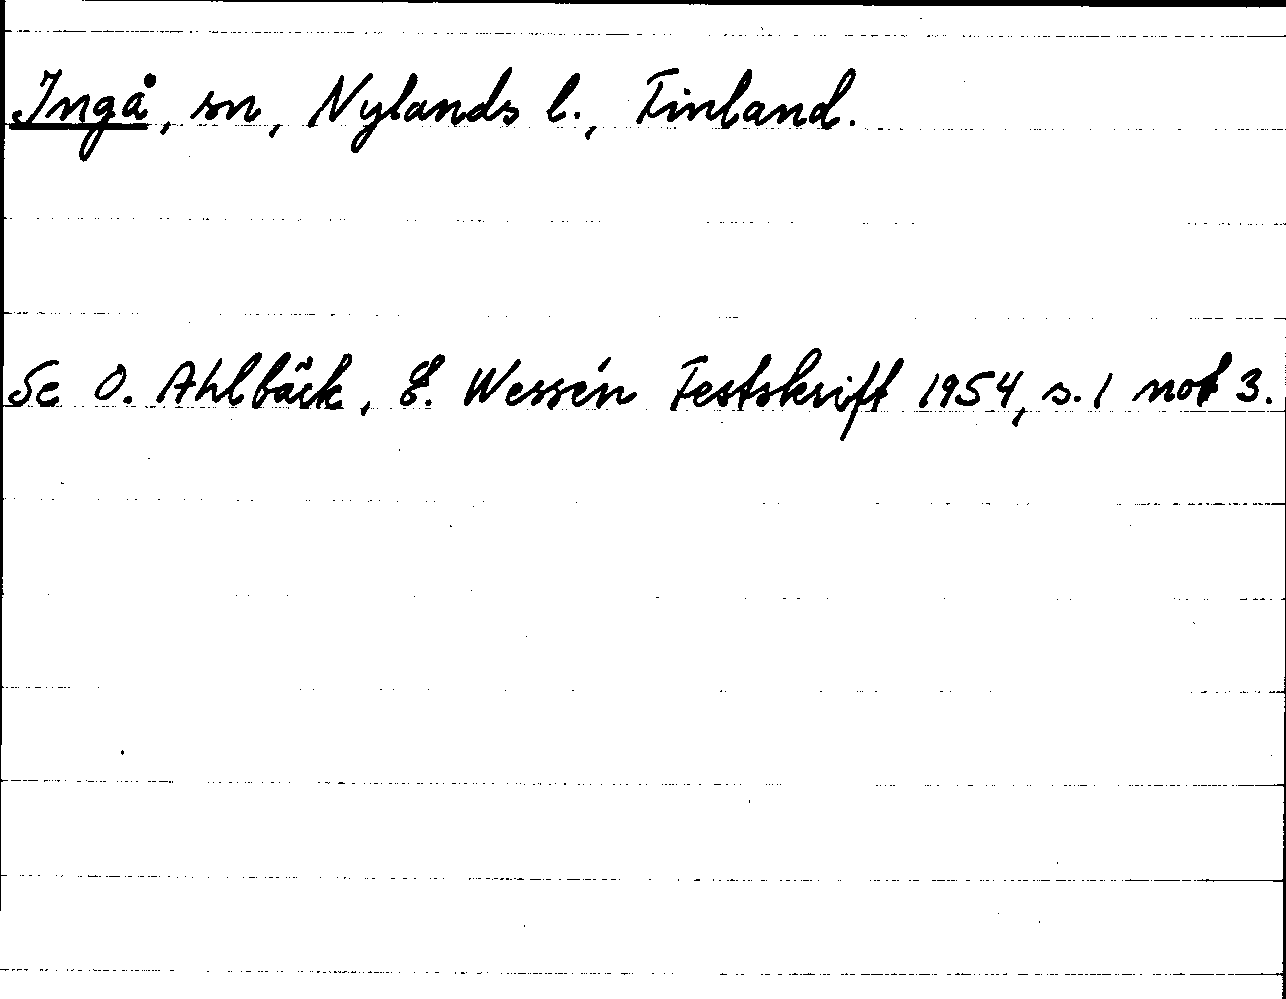 Ingå, sn, Nylands l., Finland.
Se O. Ahlbäck, E. Wessén Festskrift 1954, s. 1 not 3.